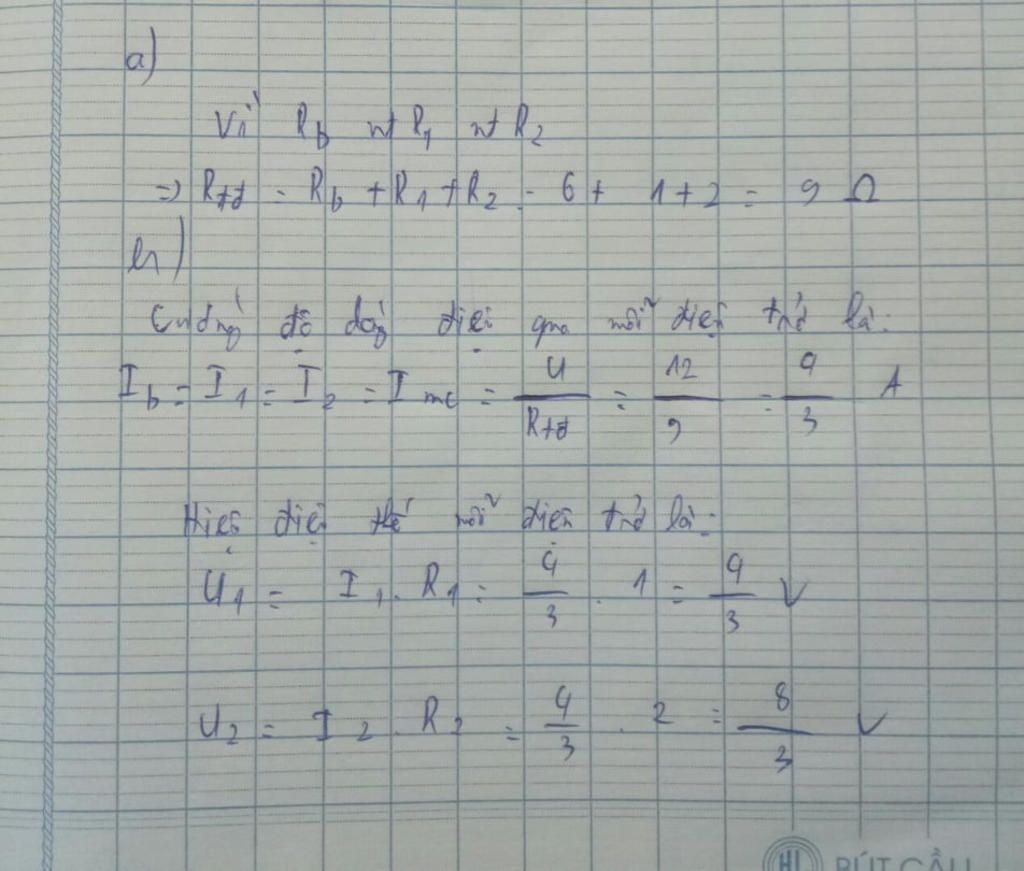 a)
Vì Rb nt R1 nt R2
=> Rtđ = Rb + R1 + R2 = 6 + 1 + 2 = 9 Ω
b)
Cường độ dòng điện qua mỗi điện trở là:
Ib = I1 = I2 = Imc = U/Rtđ = 12/9 = 4/3 A
Hiệu điện thế mỗi điện trở là:
U1 = I1 . R1 = 4/3 . 1 = 4/3 V
U2 = I2 . R2 = 4/3 . 2 = 8/3 V
BÚT CẦU